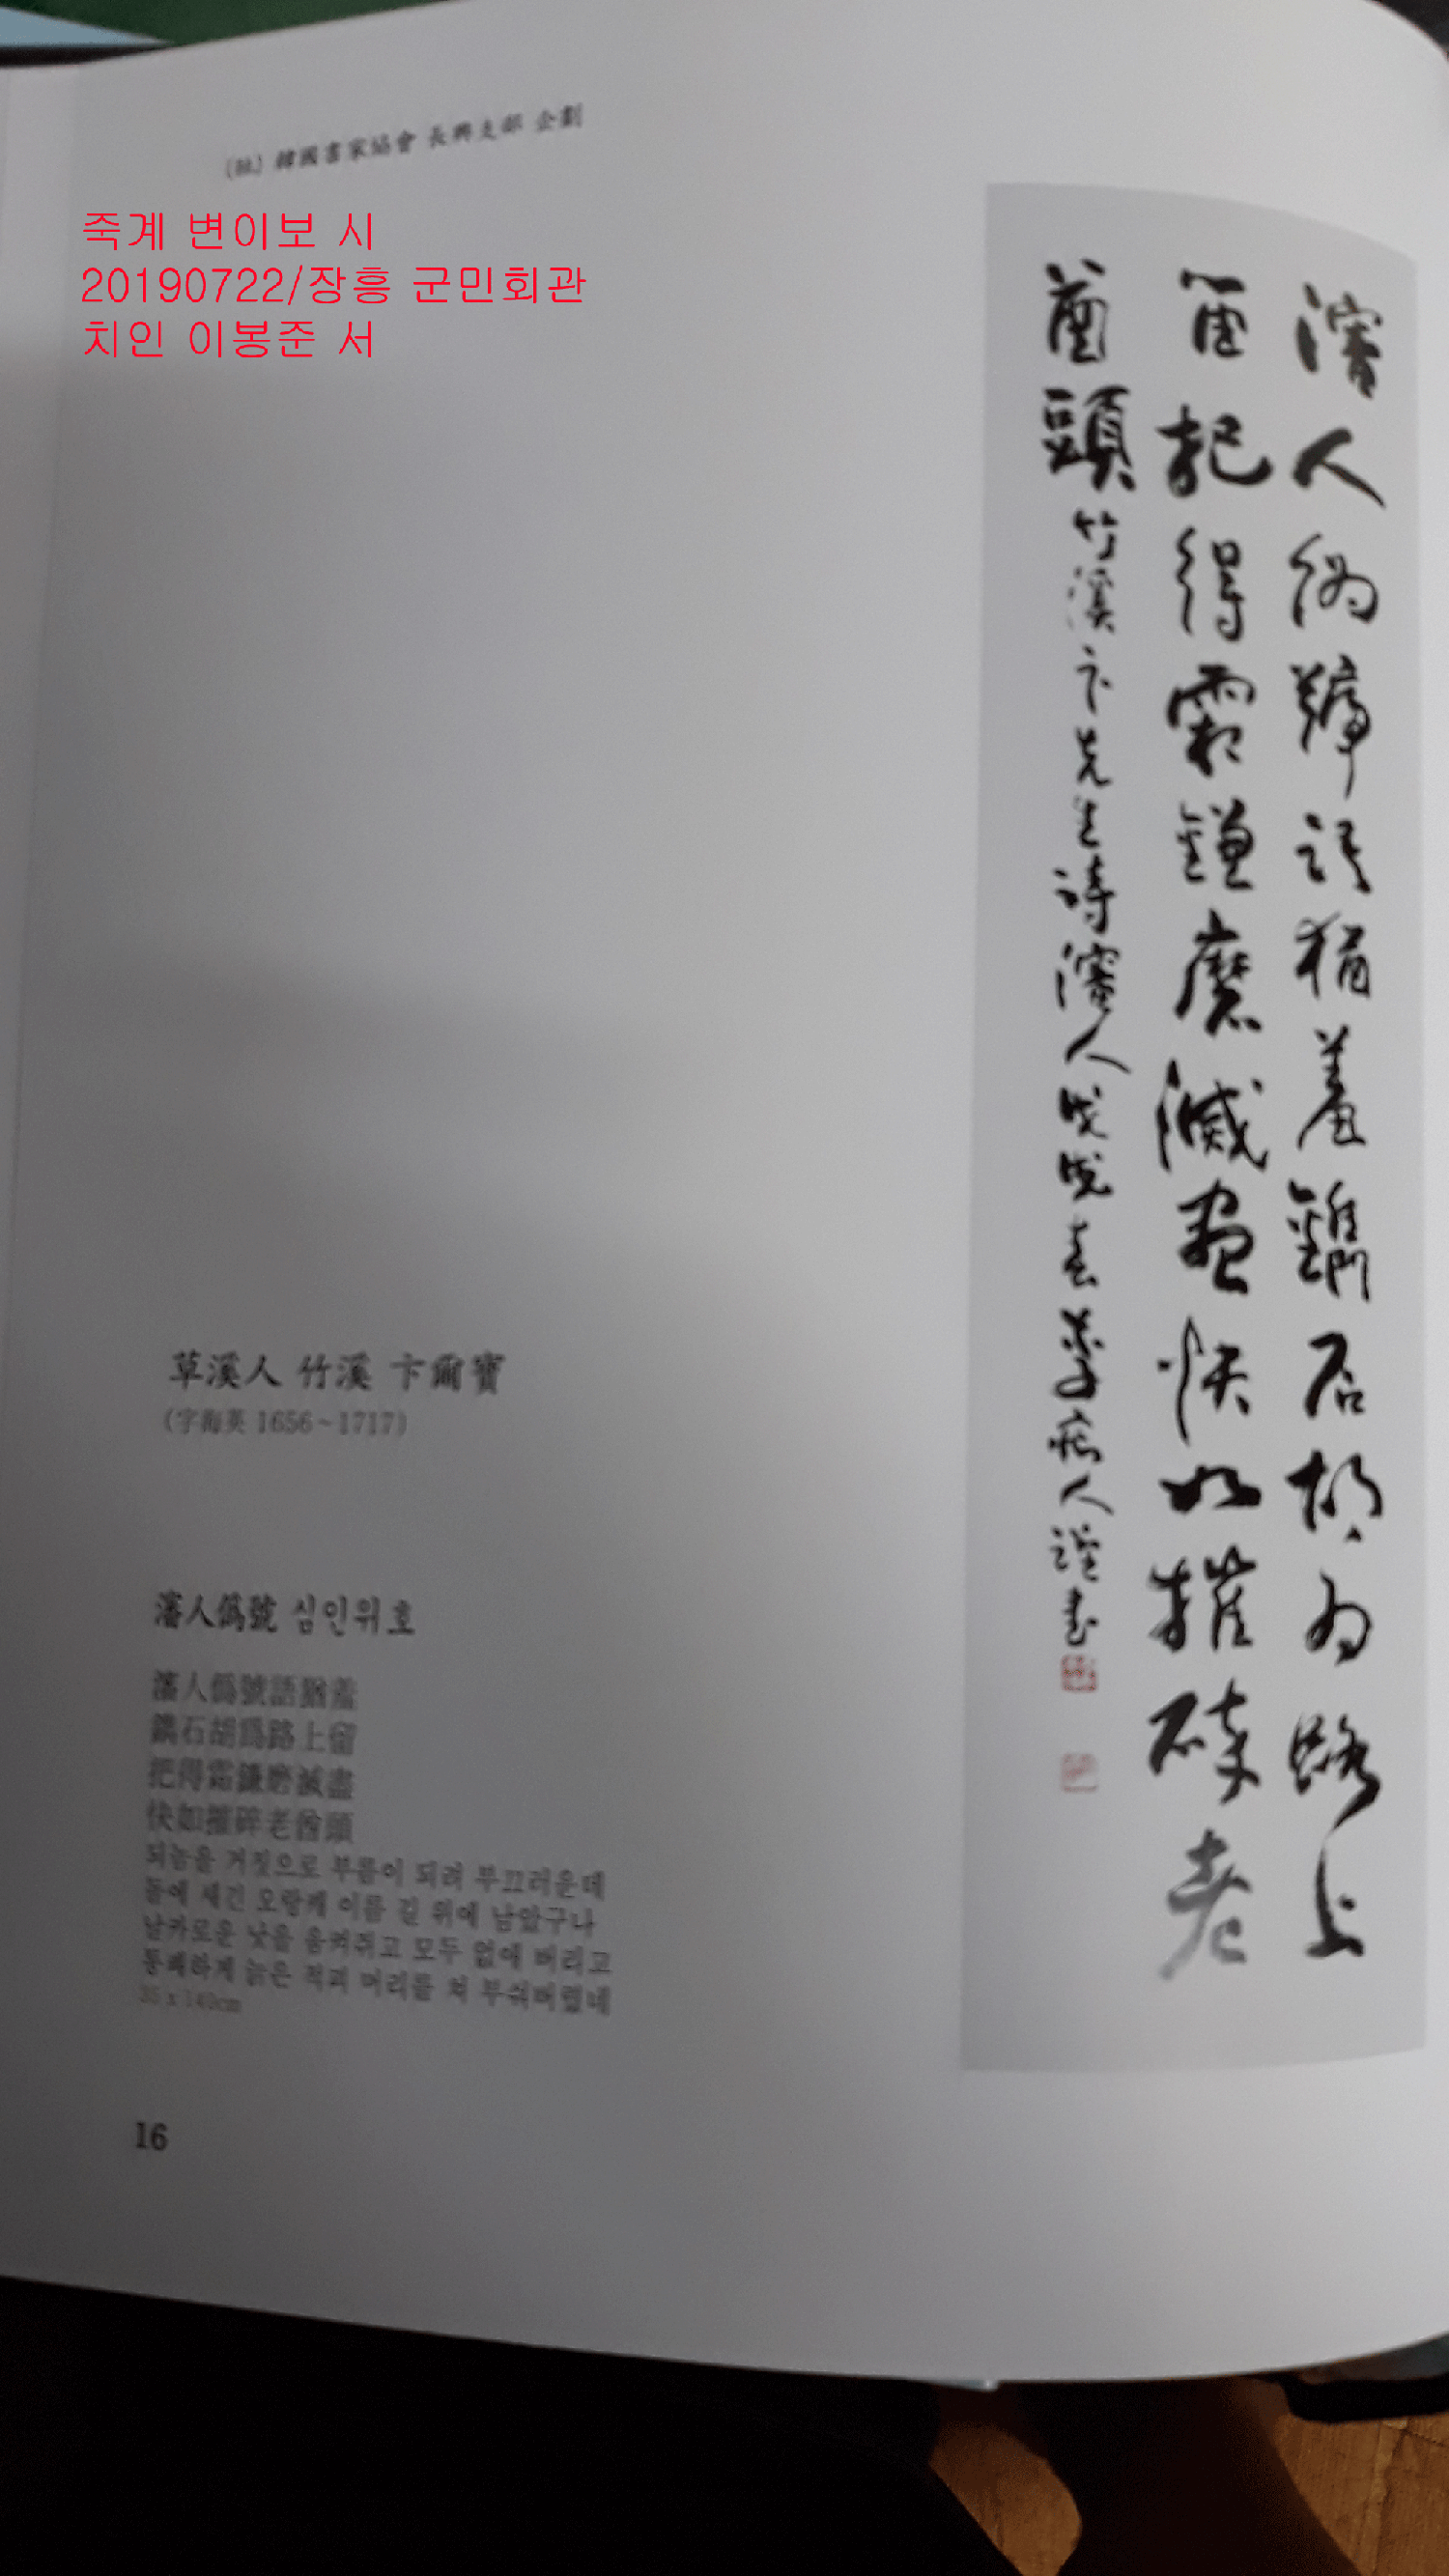 (社) 韓國書家協會 長興支部 企劃
죽계 변이보 시
20190722/장흥 군민회관
치인 이봉준 서
瀋人僞號語猶羞鐫石胡爲路上
留把得霜鎌磨滅盡快如摧碎老
酋頭 竹溪卞先生詩瀋人 戊戌春 病人 書
草溪人 竹溪 卞爾寶
(字海英 1656~1717)
瀋人僞號 심인위호
瀋人僞號語猶羞
鐫石胡爲路上留
把得霜鎌磨滅盡
快如摧碎老酋頭
되놈을 거짓으로 부름이 되려 부끄러운데
돌에 새긴 오랑캐 이름 길 위에 남았구나
날카로운 낫을 움켜쥐고 모두 없애 버리고
통쾌하게 늙은 적괴 머리를 쳐 부숴버렸네
35 x 140cm
16